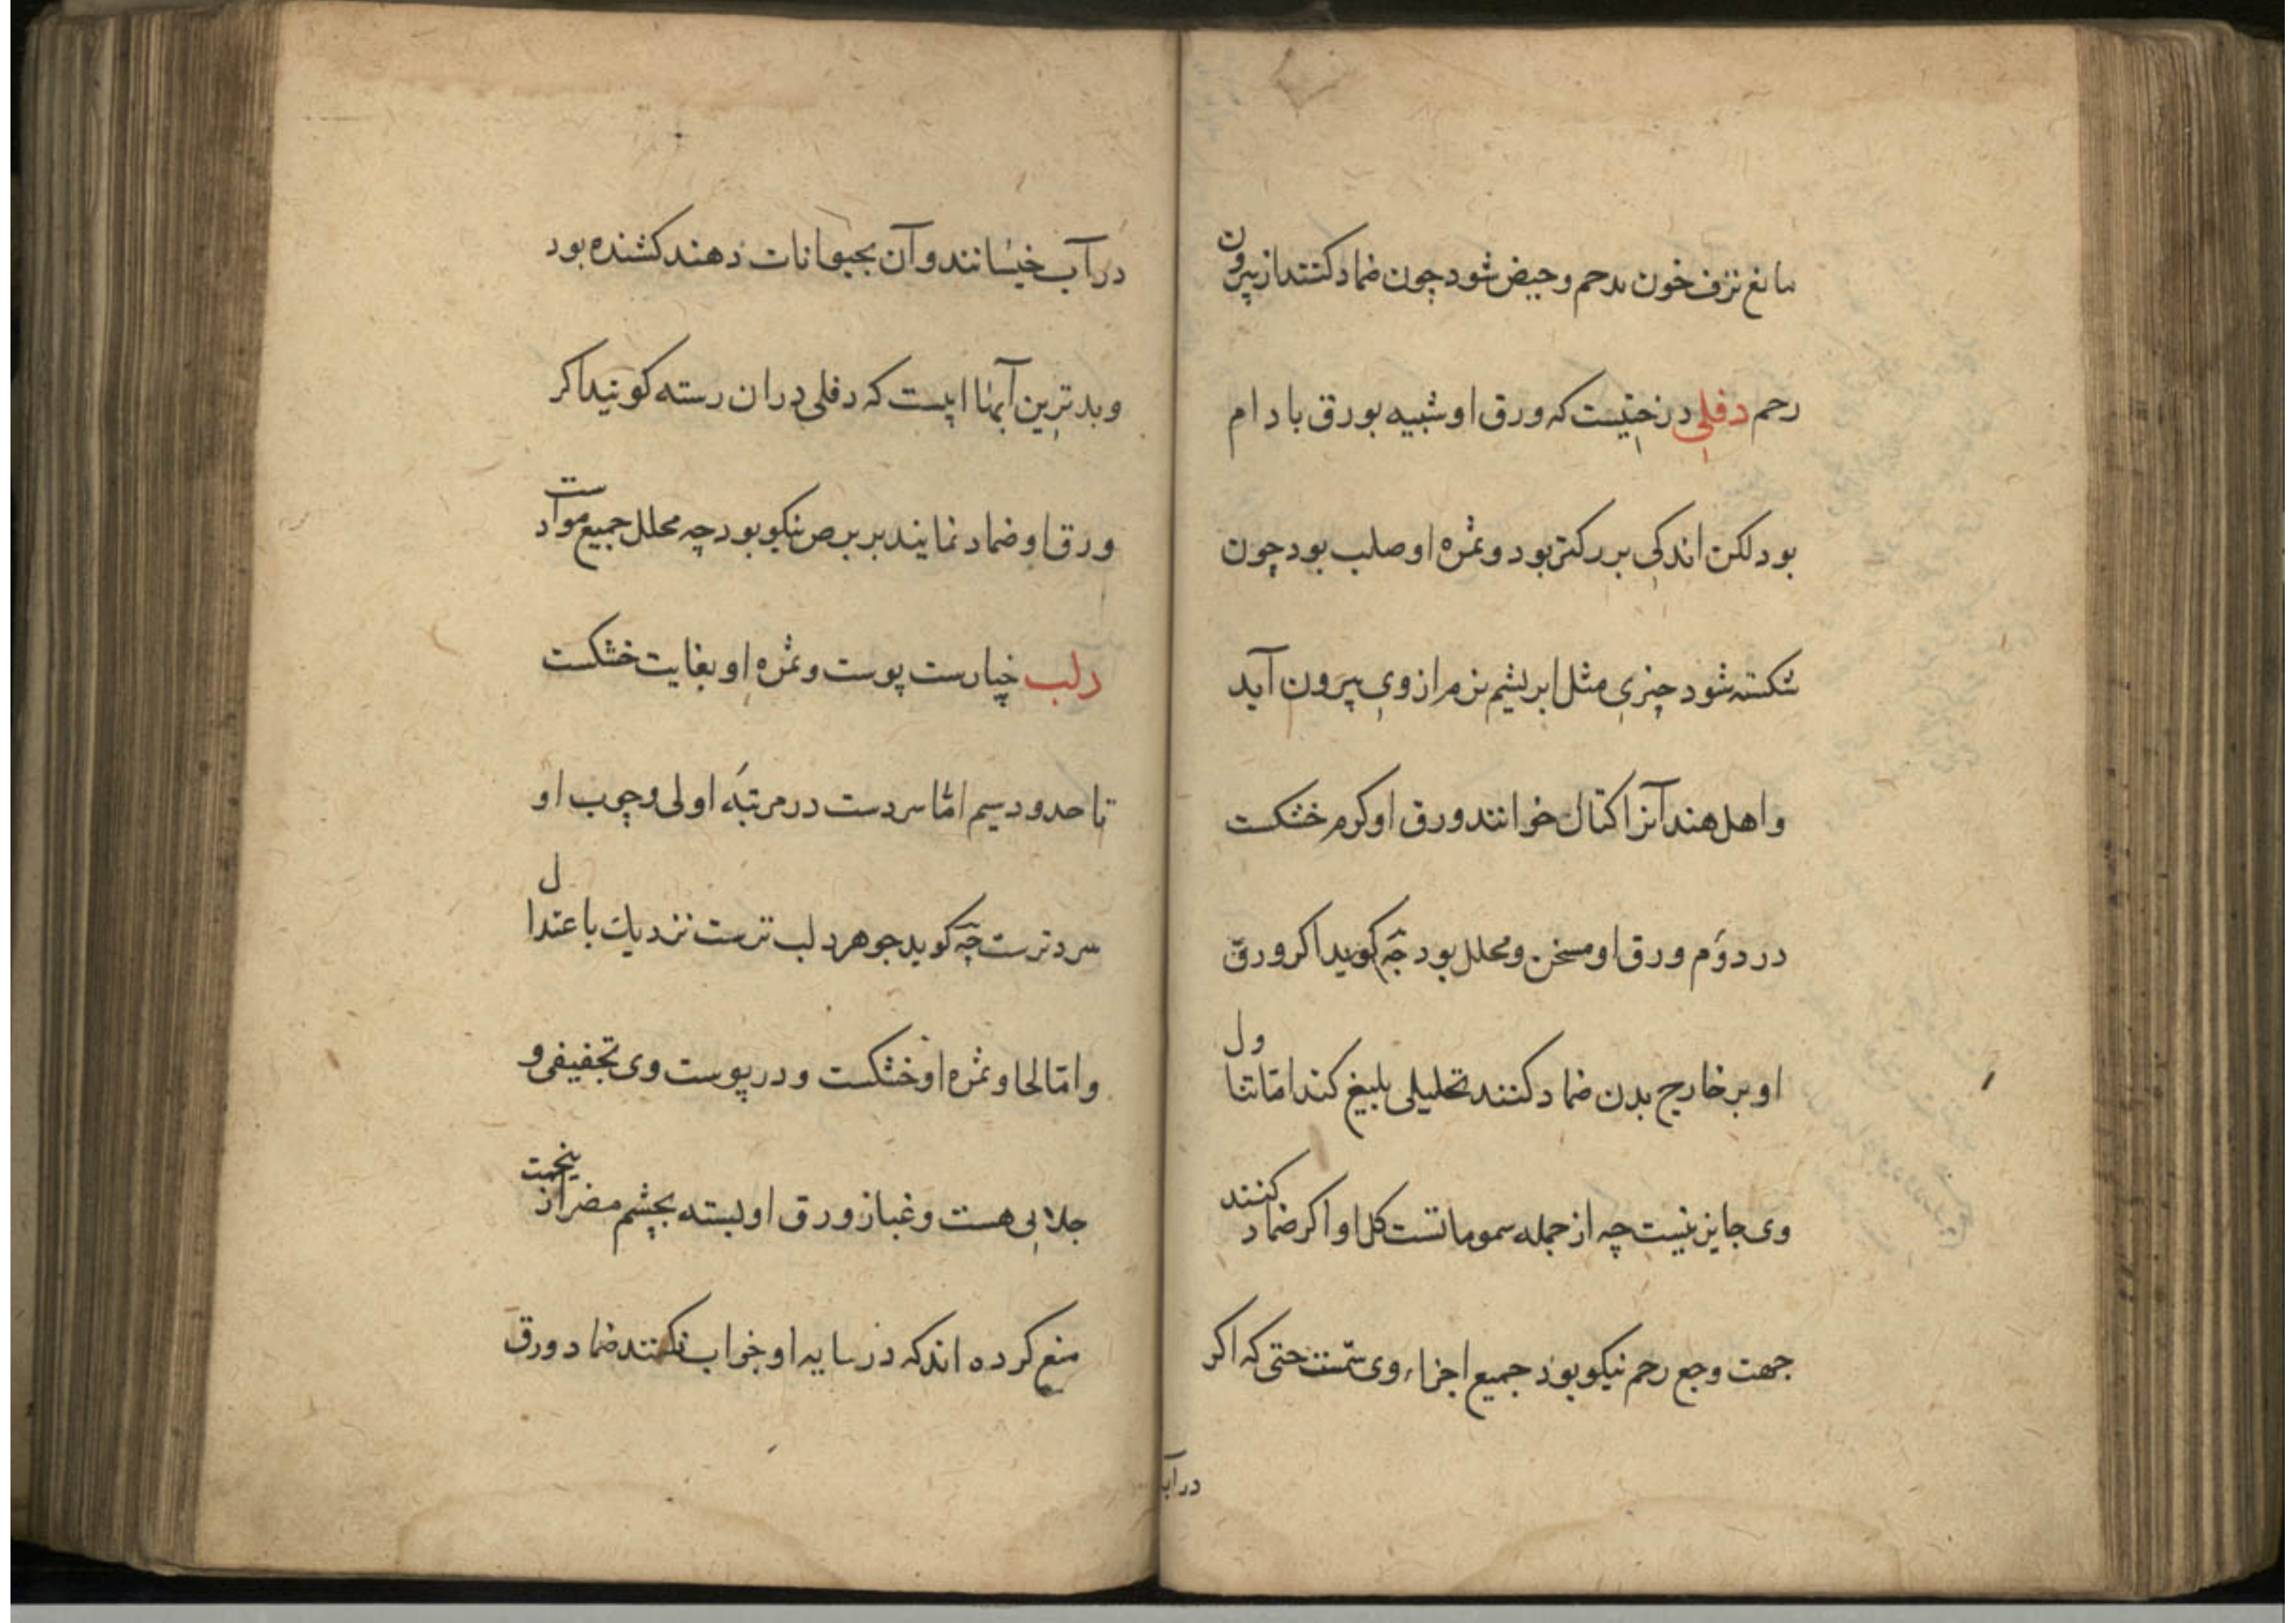 مانع نزف خون بدحم وحیض شود چون ضماد کنند از بیرون
رحم دفلی درختیست که ورق او شبیه بورق بادام
بود لکن اندکی بزرکتر بود و ثمره او صلب بود چون
شکسته شود چیزی مثل ابریشم نرم از وی بیرون آید
و اهل هند آنرا کتال خوانند ورق او کرم خشکست
در دوم ورق او مسخن و محلل بود چه کوید اکر ورق
او بر خارج بدن ضماد کنند تحلیلی بلیغ کند اما تناول
وی جایز نیست چه از جمله سموماتست کل او اکر ضماد کنند
جهت وجع رحم نیکو بود جمیع اجزاء وی سمست حتی که اکر
در آب
در آب خیسانند و آن بحیوانات دهند کشنده بود
و بدترین آبها ابیست که دفلی دران رسته کویند اکر
ورق او ضماد نمایند بر برص نیکو بود چه محلل جمیع مواد ست
دلب چنارست پوست و ثمره او بغایت خشکست
تا حدود سیم اما سردست در مرتبه اولی و چوب او
سردترست چه کوید جوهر دلب ترست نزدیك باعتدال
و اما لحا و ثمره او خشکست و در پوست وی تجفیفی و
جلایی هست و غبار ورق او لبسته بچشم مضر ازینجهت
منع کرده اند که در سایه او خواب نکنند ضماد ورق